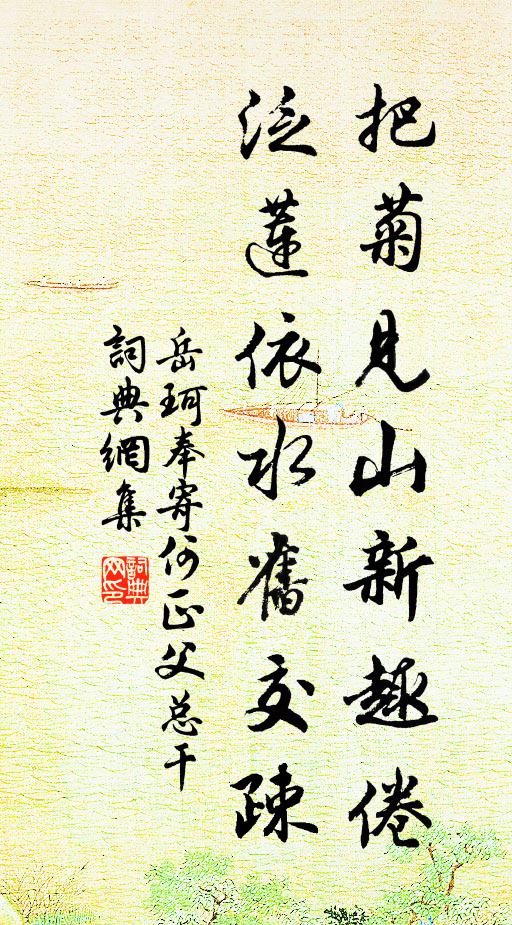 把菊見山新趣倦
泛蓮依水舊交疎
岳珂奉寄何正父总干
詞典網集
詞典网印